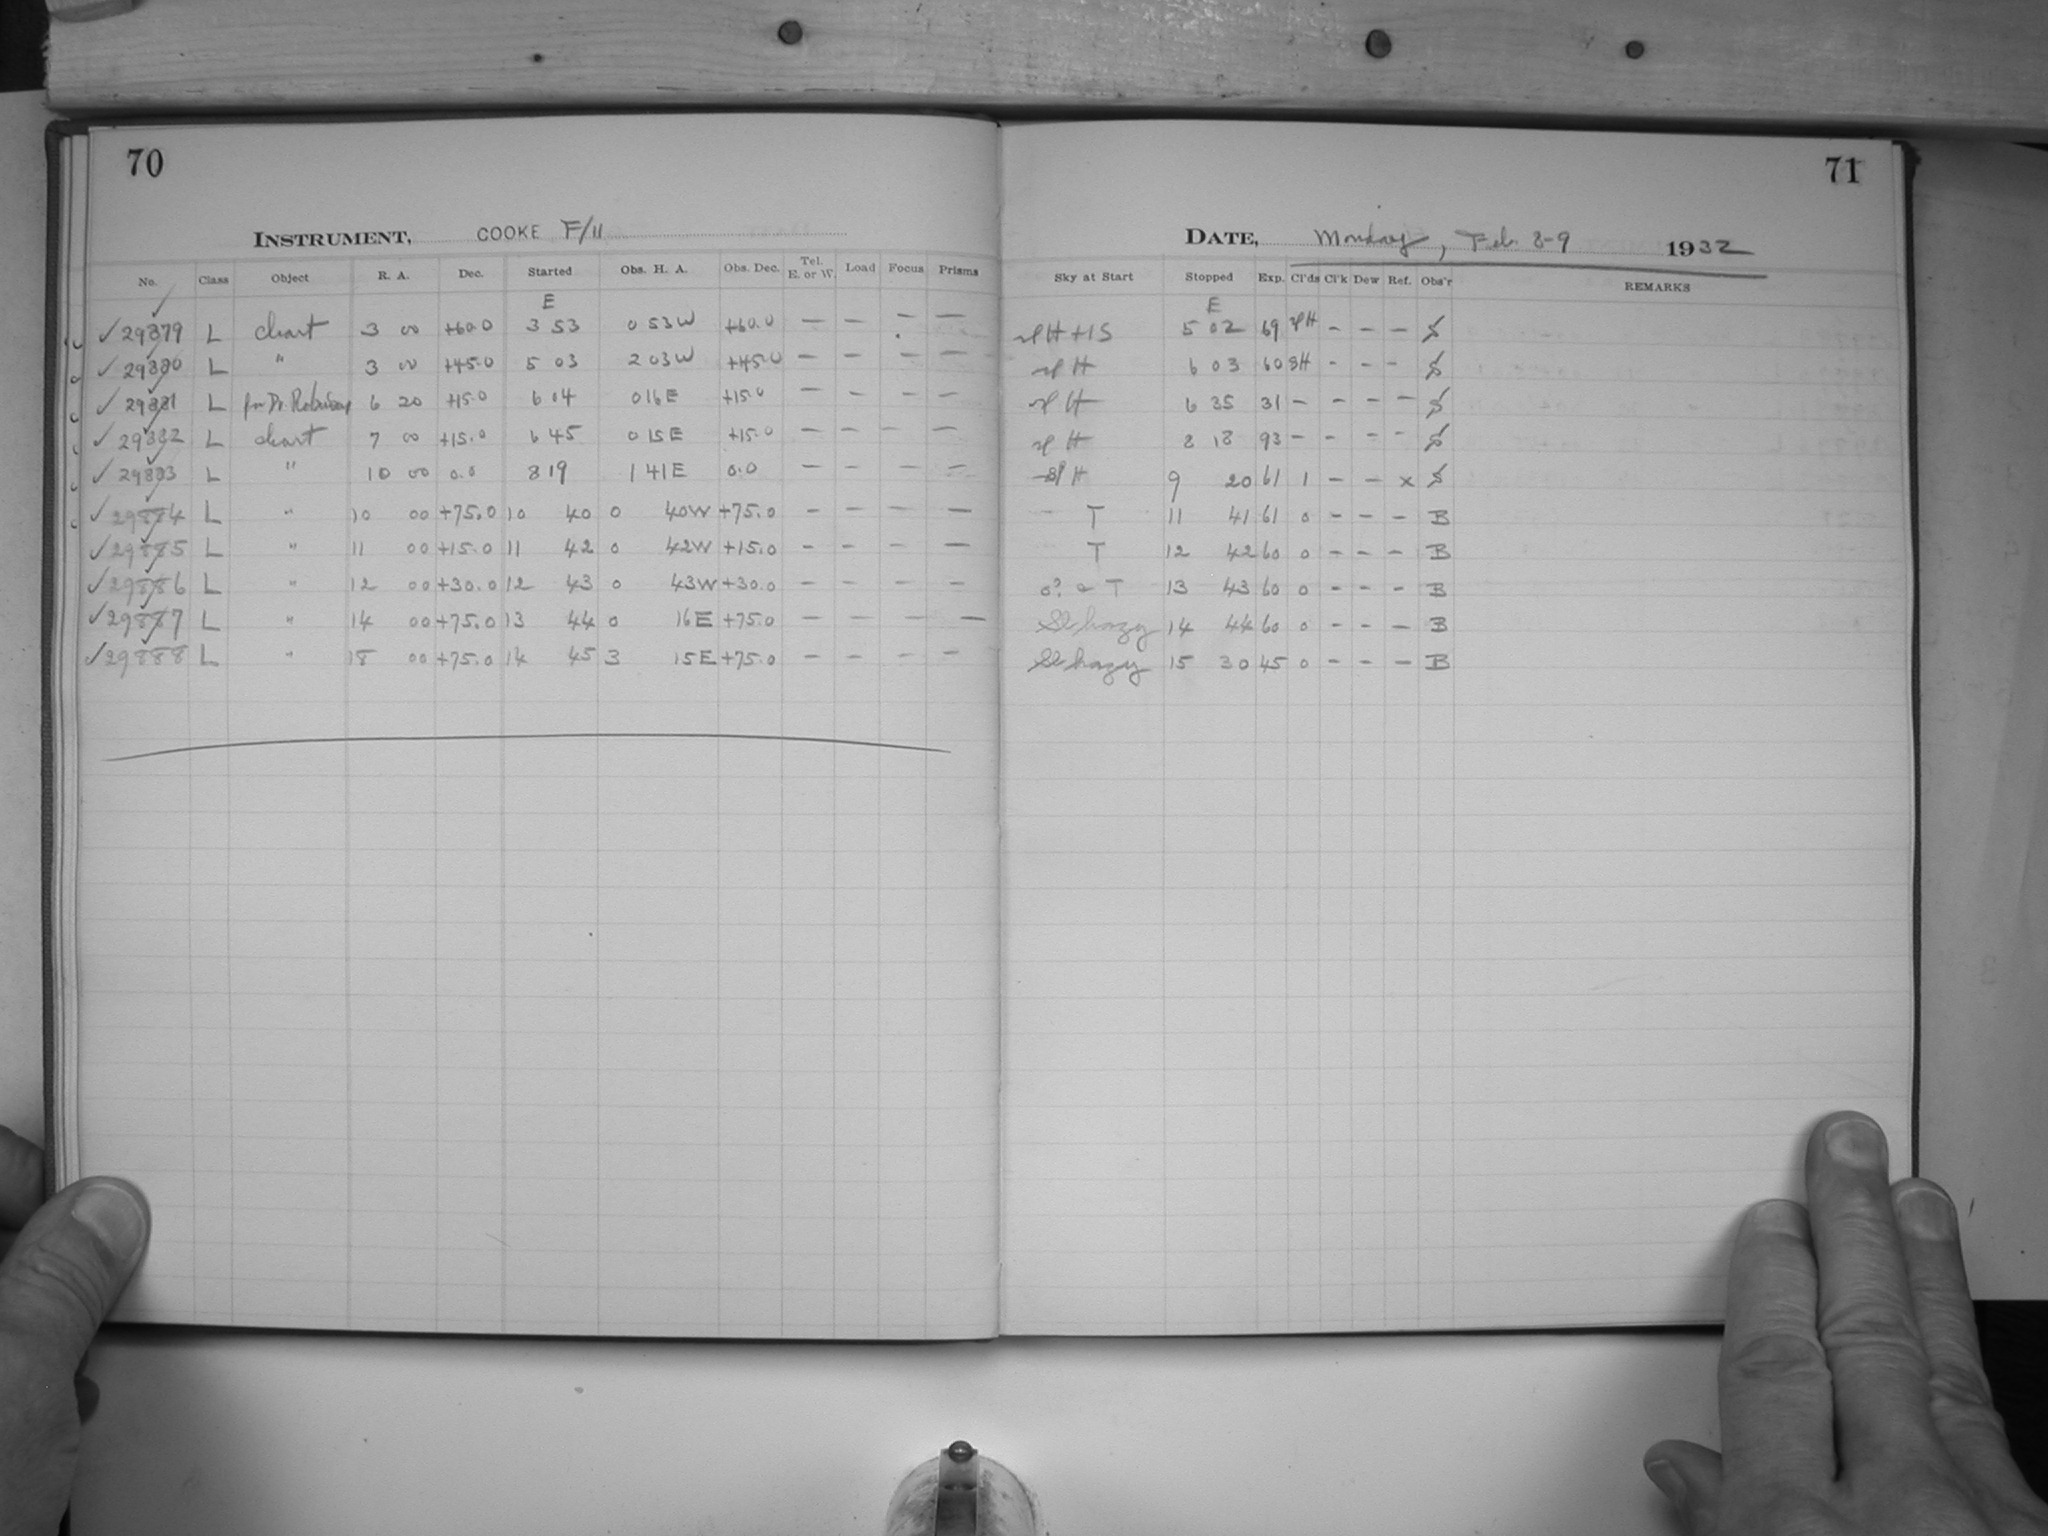 70
INSTRUMENT, COOKE F/11
No. Class Object R. A. Dec. Started Obs. H. A. Obs. Dec. Tel. E. or W. Load Focus Prisms
E
✓ 29879 L chart 3 00 +60.0 3 53 0 53W +60.0 — — — —
29880 L " 3 00 +45.0 5 03 2 03W +45.0 — — — —
✓ 29881 L for Dr. Robinson 6 20 +15.0 6 04 0 16E +15.0 — — — —
✓ 29882 L chart 7 00 +15.0 6 45 0 15E +15.0 — — — —
✓ 29883 L " 10 00 0.0 8 19 1 41E 0.0 — — — —
✓ 29884 L " 10 00 +75.0 10 40 0 40W +75.0 — — — —
✓ 29885 L " 11 00 +15.0 11 42 0 42W +15.0 — — — —
✓ 29886 L " 12 00 +30.0 12 43 0 43W +30.0 — — — —
✓ 29887 L " 14 00 +75.0 13 44 0 16E +75.0 — — — —
✓ 29888 L " 18 00 +75.0 14 45 3 15E +75.0 — — — —
71
DATE, Monday, Feb. 8-9 1932
Sky at Start Stopped Exp. Cl'ds Cl'k Dew Ref. Obs'r REMARKS
E
H + 1S 5 02 69 H – – –
H 6 03 60 H – – –
H 6 35 31 – – – –
H 8 18 93 – – – –
H 9 20 61 1 – – x
T 11 41 61 0 – – – B
T 12 42 60 0 – – – B
0? & T 13 43 60 0 – – – B
Sl hazy 14 44 60 0 – – – B
Sl hazy 15 30 45 0 – – – B